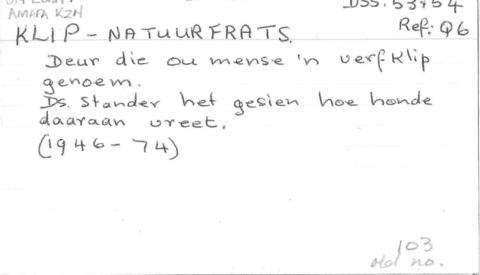 AMAFA KZN
DSS: 53454
KLIP - NATUURFRATS.
Ref: Q6
Deur die ou mense 'n verfklip
genoem.
Ds. Stander het gesien hoe honde
daaraan vreet.
(1946 - 74)
103
old no.